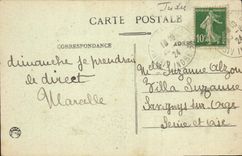 Indre
CARTE POSTALE
CORRESPONDANCE
ADRESSE
10c
24
dimanche je prendrai
le direct
Marcelle
Mlle Suzanne
Villa Suzanne
Savigny sur Orge
Seine et Oise